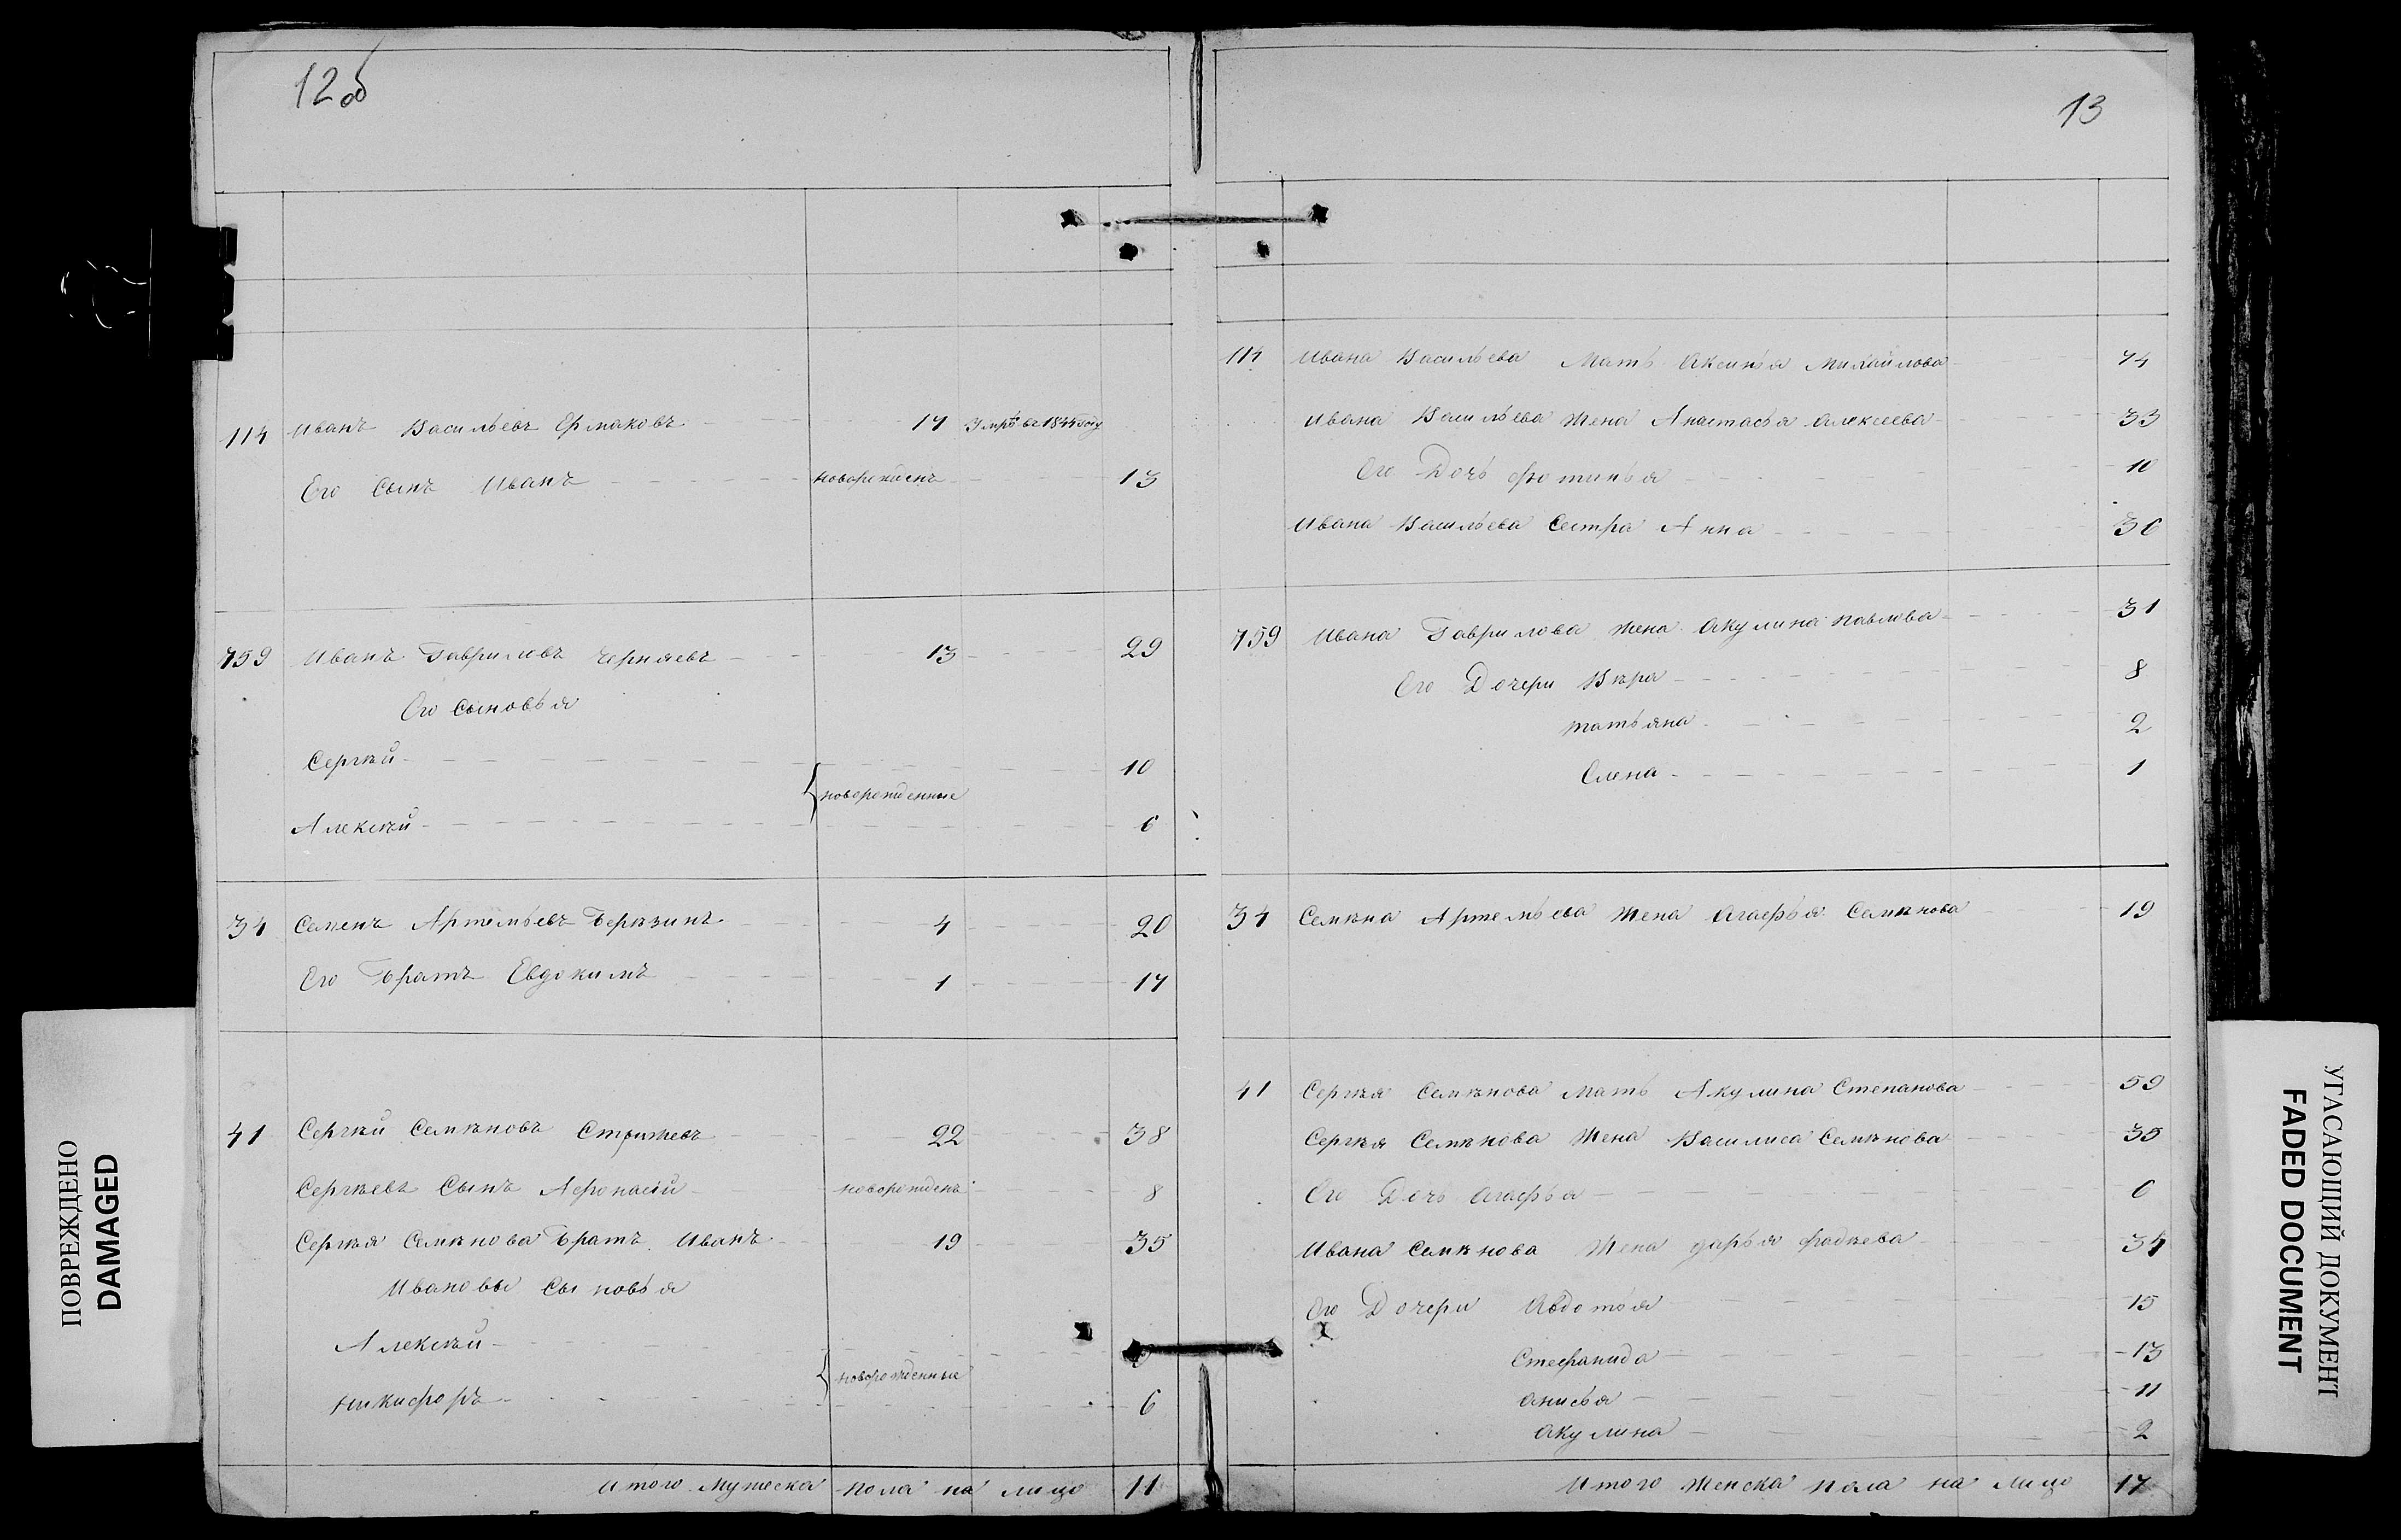 12об
114 Иванъ Васильевъ Ермаковъ 17 Умръ въ 1844 году
Его Сынъ Иванъ новорожденъ 13
759 Иванъ Гавриловъ Черняевъ 13 29
Его Сыновья
Сергѣй 10
новорожденные
Алексѣй 6
34 Семенъ Артемьевъ Берѣзинъ 4 20
Его Братъ Евдокимъ 1 17
41 Сергѣй Семѣновъ Стрижевъ 22 38
Сергѣевъ Сынъ Афонасій новорожденъ 8
Сергѣя Семѣнова Братъ Иванъ 19 35
Ивановы Сыновья
Алексѣй
новорожденные
Никифоръ 6
Итого Мужеска пола на лицо 11
13
114 Ивана Васильева Мать Аксинья Михайлова 74
Ивана Васильева Жена Анастасья Алексеева 33
Его Дочь Фотинья 10
Ивана Васильева Сестра Анна 36
759 Ивана Гаврилова Жена Акулина Павлова 31
Его Дочери Вѣра 8
Татьяна 2
Елена 1
34 Семѣна Артемьева Жена Агафья Семѣнова 19
41 Сергѣя Семѣнова Мать Акулина Степанова 59
Сергѣя Семѣнова Жена Василиса Семѣнова 35
Его Дочь Агафья 6
Ивана Семѣнова Жена Дарья Фадѣева 34
Его Дочери Авдотья 15
Стефанида 13
Анисья 11
Акулина 2
Итого Женска пола на лицо 17
ПОВРЕЖДЕНО
DAMAGED
УГАСАЮЩИЙ ДОКУМЕНТ
FADED DOCUMENT